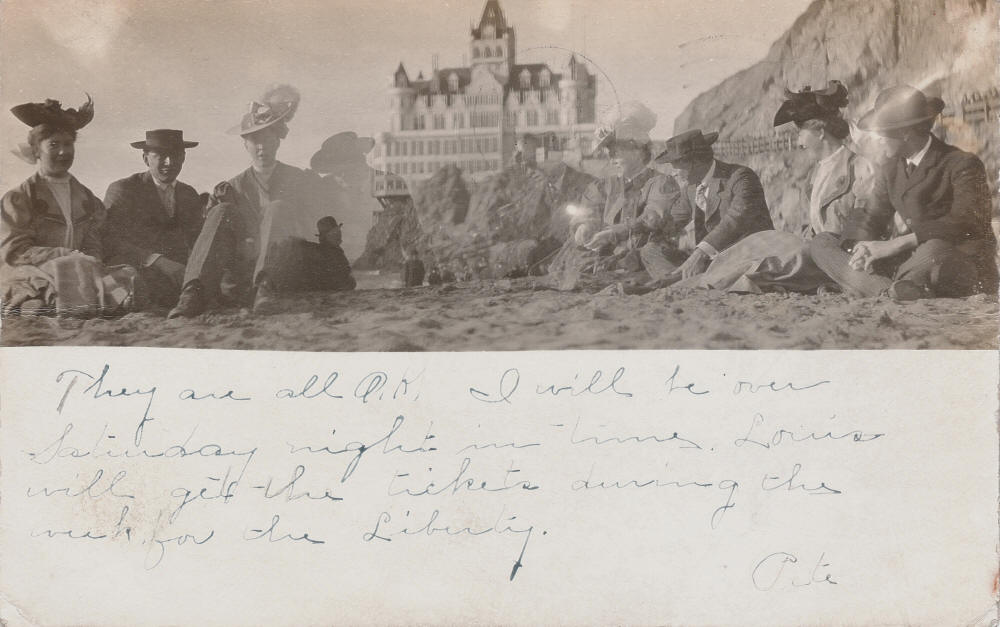 They are all O.K. I will be over
Saturday night in time. Louis
will get the tickets during the
week for the Liberty.
Pete